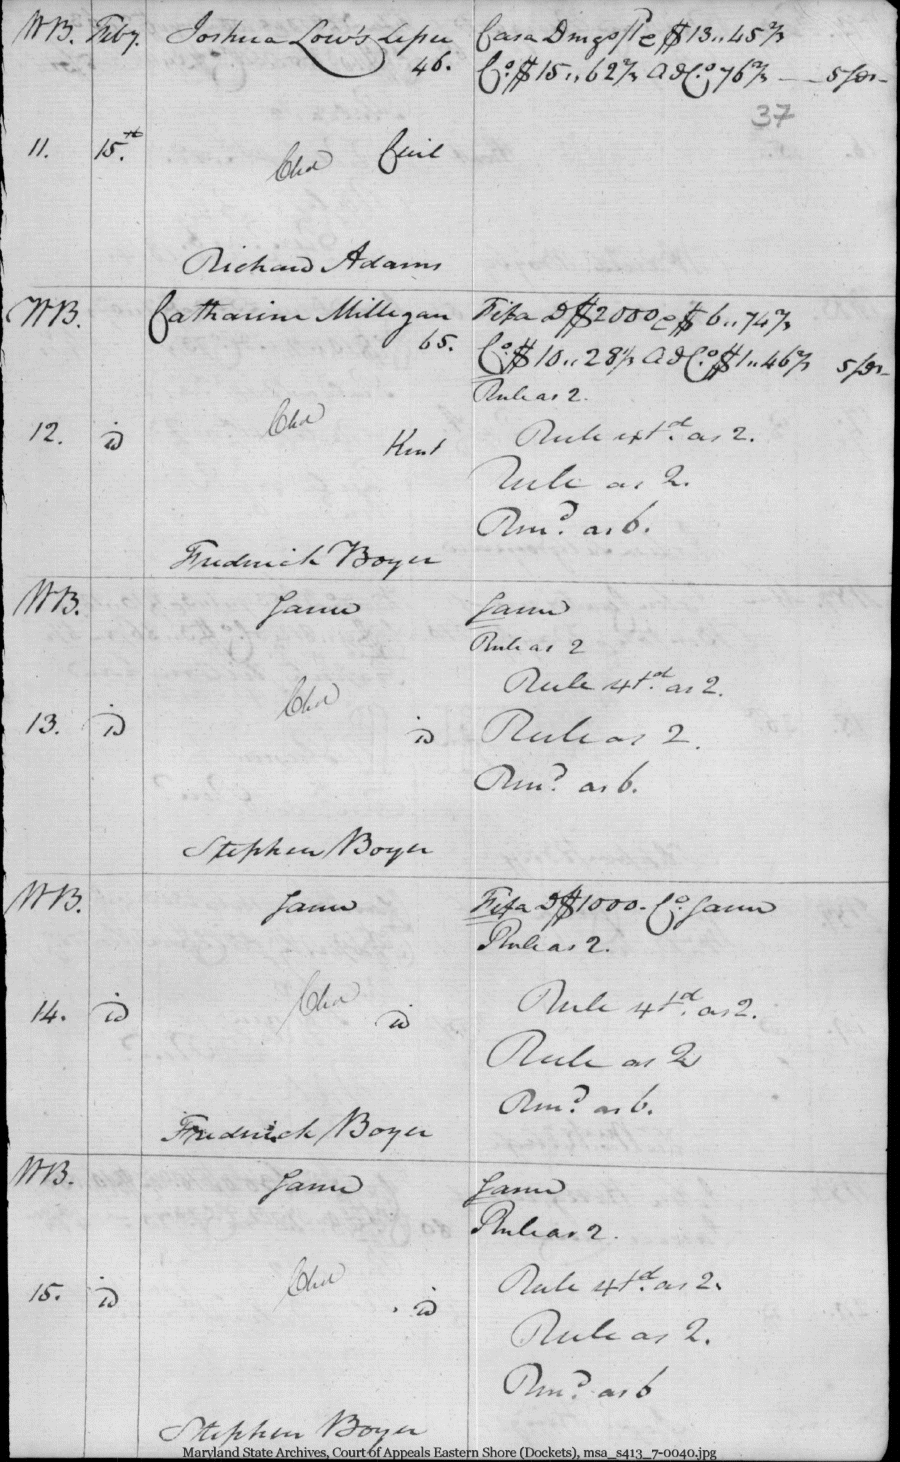 WB. Feby. Joshua Low's Lessee Casa D
46. Co. $15,,62 2/3 Ad Co 76 2/3 — 5/
37
11. 15.th Cha Cecil
Richard Adams
WB. Catharine Millegan Fifa D $2000 c $6,,74 2/3
65. Co. $10,,28 1/3 Ad Co. $1,,46 2/3 5/
Rule as 2.
12. id Cha Kent Rule extd. as 2.
Rule as 2.
Rmd. as 6.
Frederick Boyer
WB. Same Same
Rule as 2
Cha Rule 4td. as 2.
13. id id Rule as 2.
Rmd. as 6.
Stephen Boyer
WB. Same Fifa D $1000. Co. Same
Rule as 2.
14. id Cha id Rule 4td. as 2.
Rule as 2
Rmd. as 6.
Frederick Boyer
WB. Same Same
Rule as 2.
15. id Cha id Rule 4td. as 2.
Rule as 2.
Rmd. as 6
Stephen Boyer
Maryland State Archives, Court of Appeals Eastern Shore (Dockets), msa_s413_7-0040.jpg